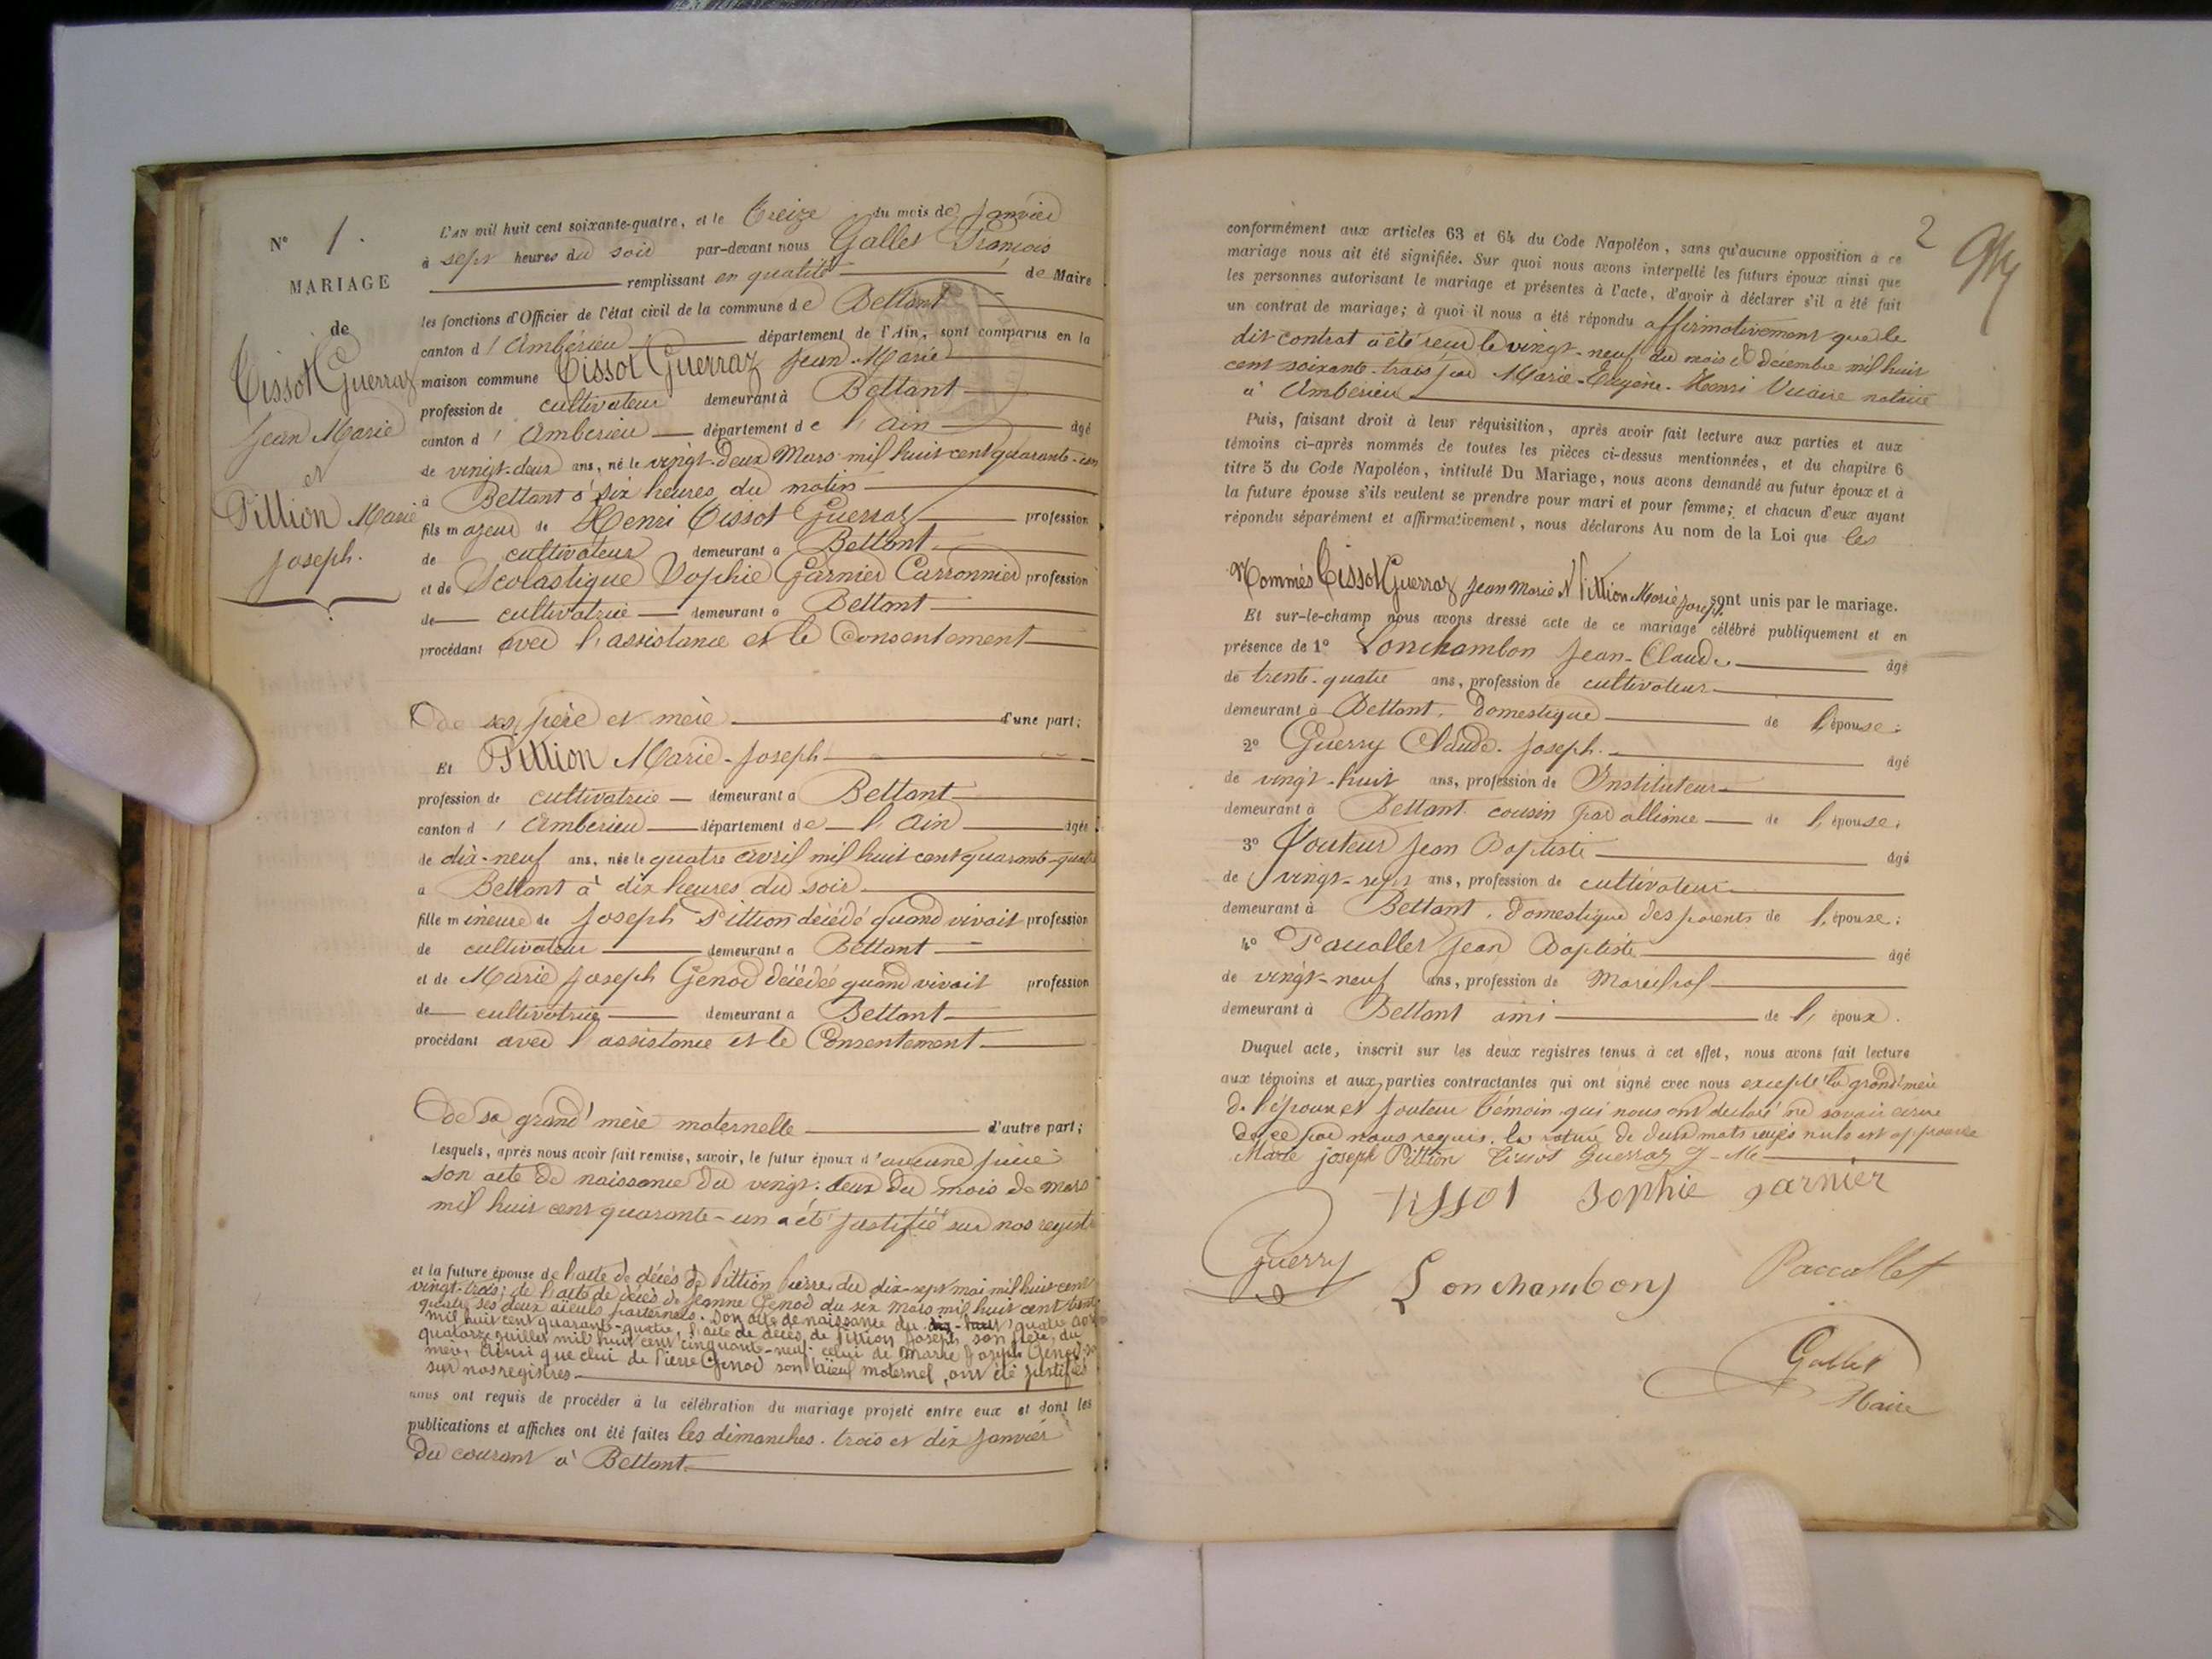 N° 1.
MARIAGE
de
Tissot Guerraz
Jean Marie
et
Pittion Marie
Joseph.
L'AN mil huit cent soixante-quatre, et le Treize du mois de Janvier
à sept heures du soir par-devant nous Gallet François
remplissant en qualité de Maire
les fonctions d'Officier de l'état civil de la commune de Bettant
canton d'Ambérieu département de l'Ain, sont comparus en la
maison commune Tissot Guerraz Jean Marie
profession de cultivateur demeurant à Bettant
canton d'Amberieu département de l'Ain âgé
de vingt-deux ans, né le vingt-deux Mars mil huit cent quarante-un
à Bettant à six heures du matin
fils majeur de Henri Tissot Guerraz profession
de cultivateur demeurant à Bettant
et de Scolastique Sophie Garnier Carronnier profession
de cultivatrice demeurant à Bettant
procédant avec l'assistance et le Consentement
De ses père et mère d'une part;
Et Pittion Marie-Joseph
profession de cultivatrice demeurant à Bettant
canton d'Amberieu département de l'Ain âgée
de dix-neuf ans, née le quatre avril mil huit cent quarante-quatre
à Bettant à dix heures du soir
fille mineure de Joseph Pittion décédé quand vivait profession
de cultivateur demeurant à Bettant
et de Marie Joseph Genod décédée quand vivait profession
de cultivatrice demeurant à Bettant
procédant avec l'assistance et le Consentement
De sa grand'mère maternelle d'autre part;
Lesquels, après nous avoir fait remise, savoir, le futur époux d'aucune pièce
son acte de naissance du vingt-deux du mois de mars
mil huit cent quarante-un a été justifié sur nos registres
et la future épouse de l'acte de décès de Pittion Pierre du dix-sept mai mil huit cent
vingt-trois; de l'acte de décès de Jeanne Genod du six mars mil huit cent trente
quatre ses deux aïeuls paternels. Son acte de naissance du dix-huit quatre avril
mil huit cent quarante-quatre, l'acte de décès de Pittion Joseph, son père, du
quatorze juillet mil huit cent cinquante-neuf celui de Marie Joseph Genod sa
mère, Ainsi que celui de Pierre Genod son aïeul maternel, ont été justifiés
sur nos registres
nous ont requis de procéder à la célébration du mariage projeté entre eux et dont les
publications et affiches ont été faites les dimanches trois et dix Janvier
Du courant à Bettant
2
conformément aux articles 63 et 64 du Code Napoléon, sans qu'aucune opposition à ce
mariage nous ait été signifiée. Sur quoi nous avons interpellé les futurs époux ainsi que
les personnes autorisant le mariage et présentes à l'acte, d'avoir à déclarer s'il a été fait
un contrat de mariage; à quoi il nous a été répondu affirmativement que le
dit contrat a été reçu le vingt-neuf du mois de décembre mil huit
cent soixante-trois par Marie-Eugène-Henri Vicaire notaire
à Amberieu
Puis, faisant droit à leur réquisition, après avoir fait lecture aux parties et aux
témoins ci-après nommés de toutes les pièces ci-dessus mentionnées, et du chapitre 6
titre 5 du Code Napoléon, intitulé Du Mariage, nous avons demandé au futur époux et à
la future épouse s'ils veulent se prendre pour mari et pour femme; et chacun d'eux ayant
répondu séparément et affirmativement, nous déclarons Au nom de la Loi que les
Nommés Tissot Guerraz Jean Marie & Pittion Marie Joseph sont unis par le mariage.
Et sur-le-champ nous avons dressé acte de ce mariage célébré publiquement et en
présence de 1° Lonchambon Jean-Claude âgé
de trente-quatre ans, profession de cultivateur
demeurant à Bettant, Domestique de l'épouse;
2° Guerry Claude-Joseph. âgé
de vingt-huit ans, profession de Instituteur
demeurant à Bettant cousin par alliance de l'épouse;
3° Jouteur Jean Baptiste âgé
de vingt-sept ans, profession de cultivateur
demeurant à Bettant, domestique des parents de l'épouse;
4° Paccallet Jean Baptiste âgé
de vingt-neuf ans, profession de Maréchal
demeurant à Bettant ami de l'époux.
Duquel acte, inscrit sur les deux registres tenus à cet effet, nous avons fait lecture
aux témoins et aux parties contractantes qui ont signé avec nous excepté la grand'mère
de l'époux et Jouteur témoin qui nous ont déclaré ne savoir écrire
de ce par nous requis. la rature de deux mots rayés nuls est approuvée
Marie joseph Pittion Tissot Guerraz J-Me
Tissot Sophie garnier
Guerry Lonchambon J Paccallet
Gallet
Maire